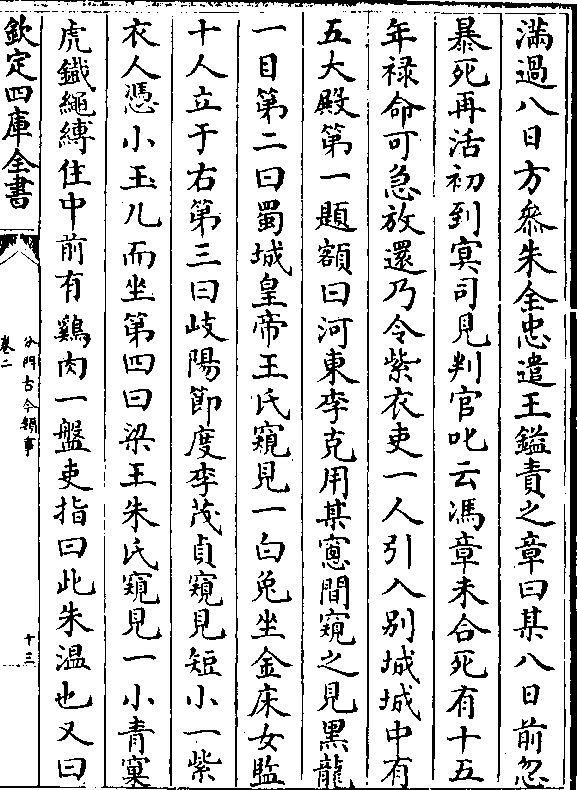 滿過八日方叅朱全忠遣王鎰責之章曰某八日前忽
暴死再活初到㝠司見判官叱云馮章未合死有十五
年禄命可急放還乃令紫衣吏一人引入别城城中有
五大殿第一題額曰河東李克用某窻間窺之見黑龍
一目第二曰蜀城皇帝王氏窺見一白兔坐金床女監
十人立于右第三曰岐陽節度李茂貞窺見短小一紫
衣人憑小玉几而坐第四曰梁王朱氏窺見一小青窠
虎鐵繩縛住中前有鷄肉一盤吏指曰此朱温也又曰
欽定四庫全書
分門古今類事
卷二
十三